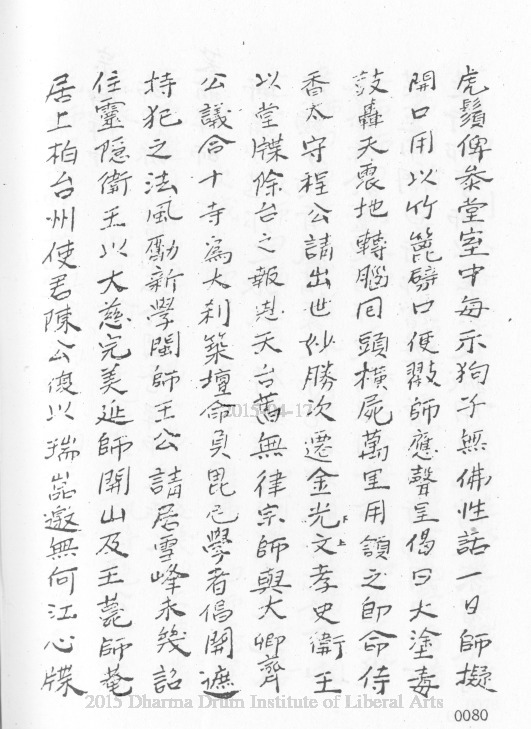 虎鬚俾參堂室中每示狗子無佛性話一日師擬
開口用以竹篦劈口便㲉師應聲呈偈曰大塗毒
鼓轟天震地轉腦回頭橫屍萬里用頷之即命侍
香太守程公請出世妙勝次遷金光文孝史衛王
以堂牒除台之報恩天台舊無律宗師與大卿齊
公議合十寺為大剎築壇命員毘尼學者倡開遮
持犯之法風勵新學閩師王公請居雪峰未幾詔
住靈隱衛王以大慈完美延師開山及王薨師菴
居上柏台州使君陳公復以瑞嵓邀無何江心牒
2015-04-17
2015 Dharma Drum Institute of Liberal Arts
0080